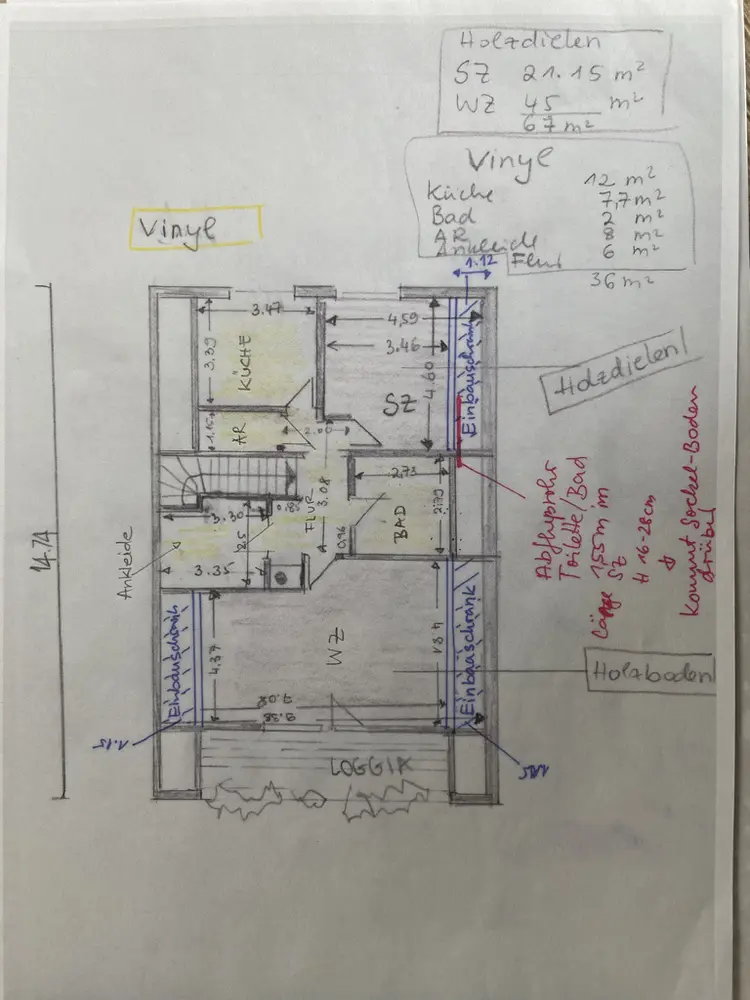 Holzdielen
SZ 21.15 m²
WZ 45 m²
67 m²
Vinyl
Küche 12 m²
Bad 7,7 m²
AR 2 m²
Ankleide 8 m²
Flur 6 m²
36 m²
Vinyl
1.12
3.47
4,59
3.46
3.39
KÜCHE
4.60
SZ
Einbauschrank
Holzdielen
1.15
AR
2.00
2,73
2.79
BAD
FLUR
3.08
0.85
0,96
3.30
2.5
3.35
Ankleide
14.74
Abflußrohr
Toilette/Bad
Länge 1,55m im
SZ
H 16-28cm
Kommt Sockel-Boden
drüber
Einbauschrank
4.37
WZ
4.81
Einbauschrank
Holzboden
7.08
9.38
1.15
LOGGIA